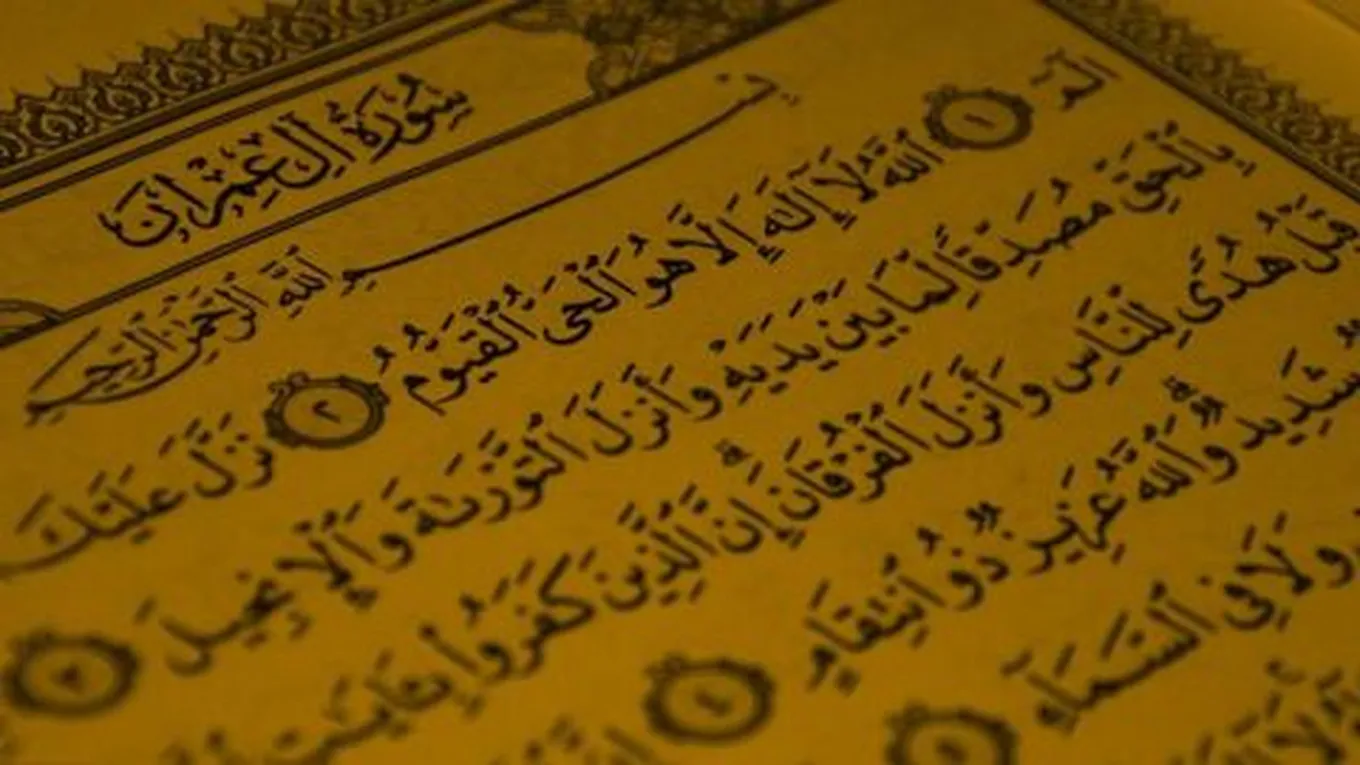 سُورَةُ آلِ عِمْرَانَ
بِسْمِ ٱللَّهِ ٱلرَّحْمَٰنِ ٱلرَّحِيمِ
الٓمٓ ١ ٱللَّهُ لَآ إِلَٰهَ إِلَّا هُوَ ٱلْحَىُّ ٱلْقَيُّومُ ٢ نَزَّلَ عَلَيْكَ
بِٱلْحَقِّ مُصَدِّقًا لِّمَا بَيْنَ يَدَيْهِ وَأَنزَلَ ٱلتَّوْرَىٰةَ وَٱلْإِنجِيلَ ٣
قَبْلُ هُدًى لِّلنَّاسِ وَأَنزَلَ ٱلْفُرْقَانَ ۗ إِنَّ ٱلَّذِينَ كَفَرُوا۟ بِـَٔايَٰتِ
شَدِيدٌ ۗ وَٱللَّهُ عَزِيزٌ ذُو ٱنتِقَامٍ ٤
وَلَا فِى ٱلسَّمَآءِ ٥